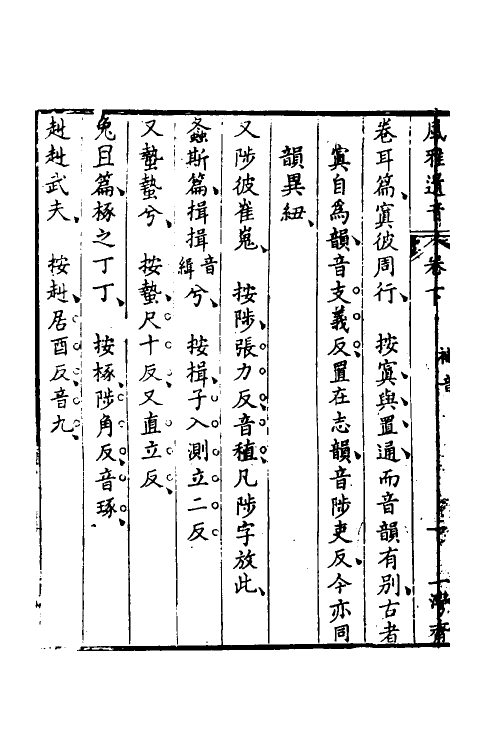 風雅遺音 卷下 補音 一灣齋
卷耳篇寘彼周行 按寘與置通而音韻有别古者
寘自爲韻音支義反置在志韻音陟吏反今亦同
韻異紐
又陟彼崔嵬 按陟張力反音稙凡陟字放此
螽斯篇揖揖音緝兮 按揖子入測立二反
又蟄蟄兮 按蟄尺十反又直立反
兔罝篇椓之丁丁 按椓陟角反音琢
赳赳武夫 按赳居酉反音九